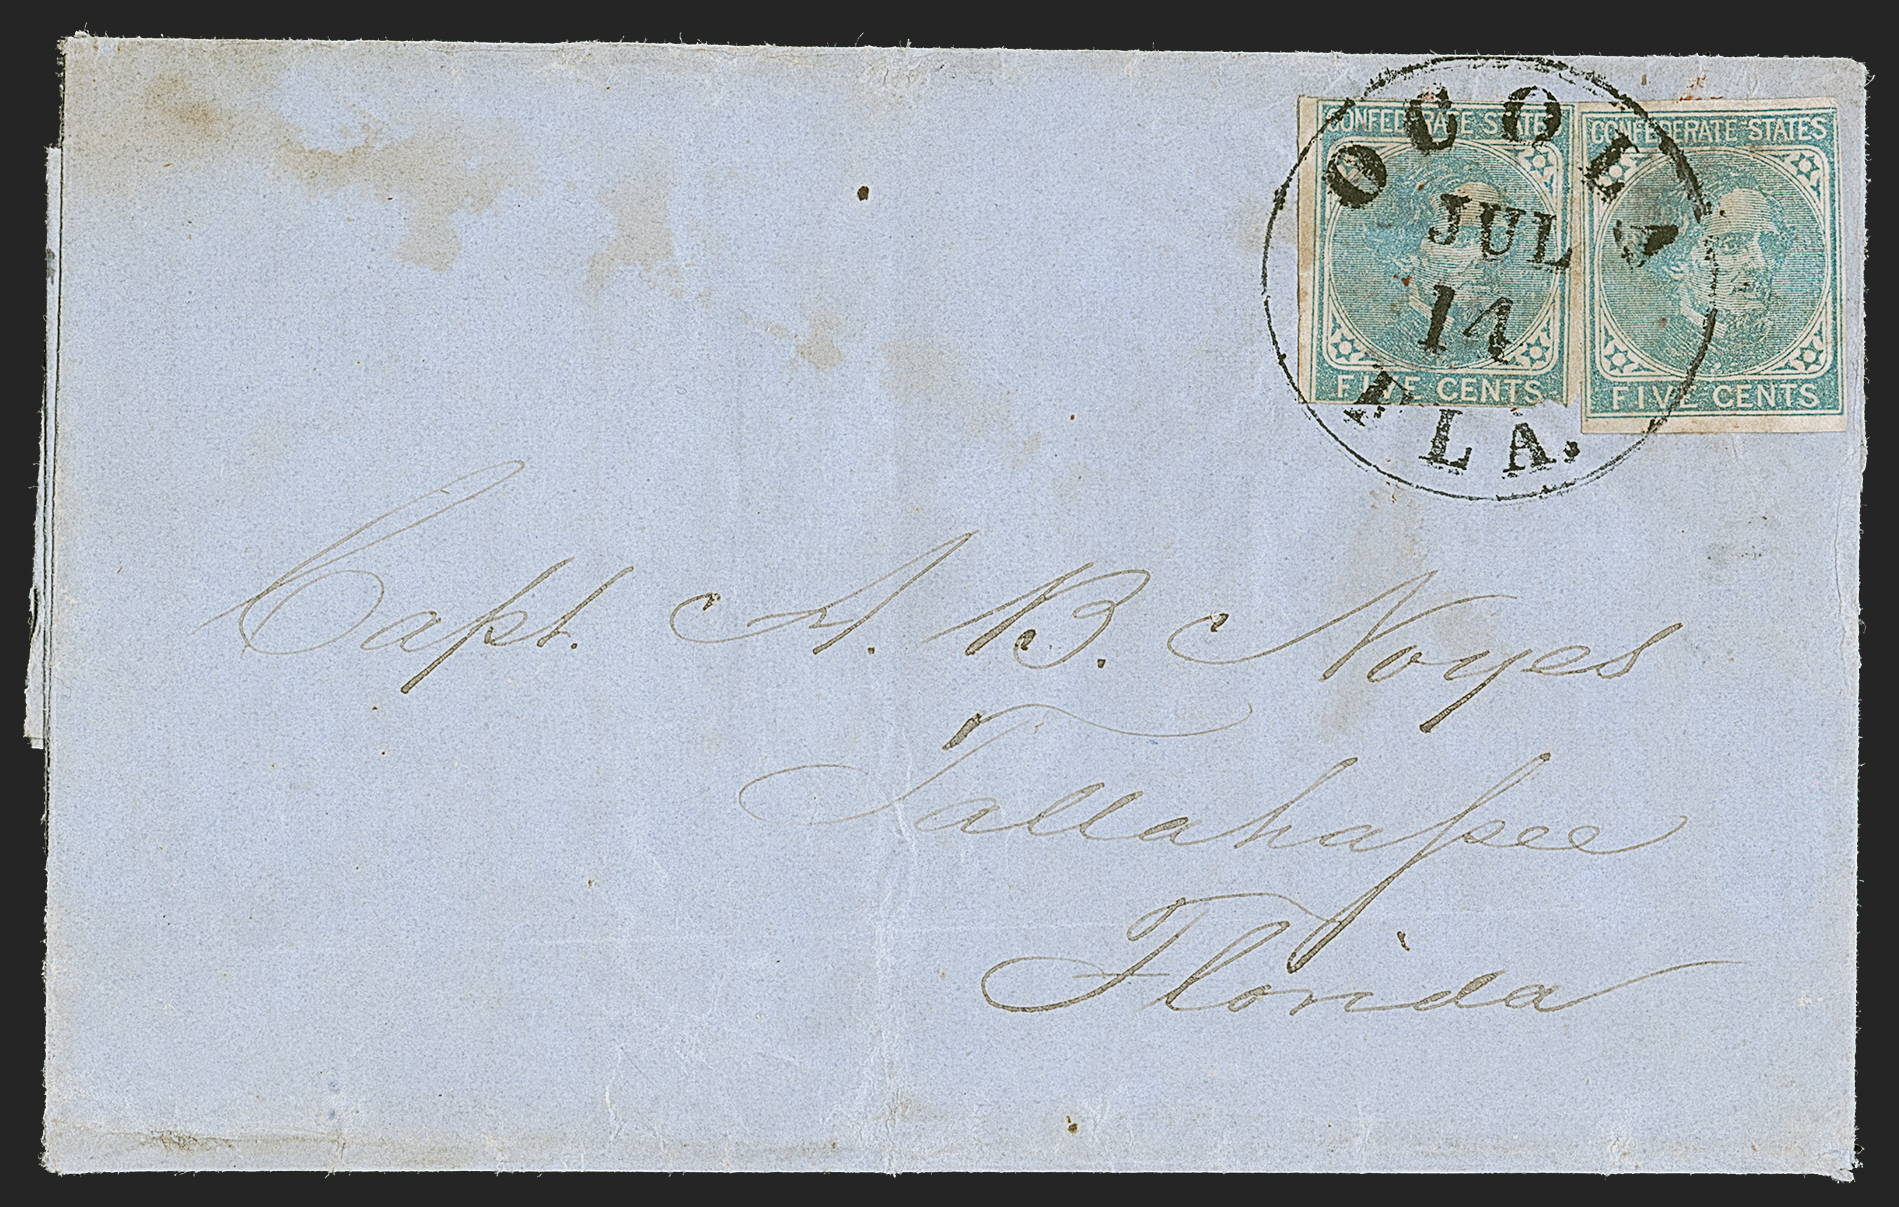 CONFEDERATE STATES
FIVE CENTS
CONFEDERATE STATES
FIVE CENTS
OCOLA
JUL
14
FLA.
Capt. A. B. Noyes
Tallahassee
Florida